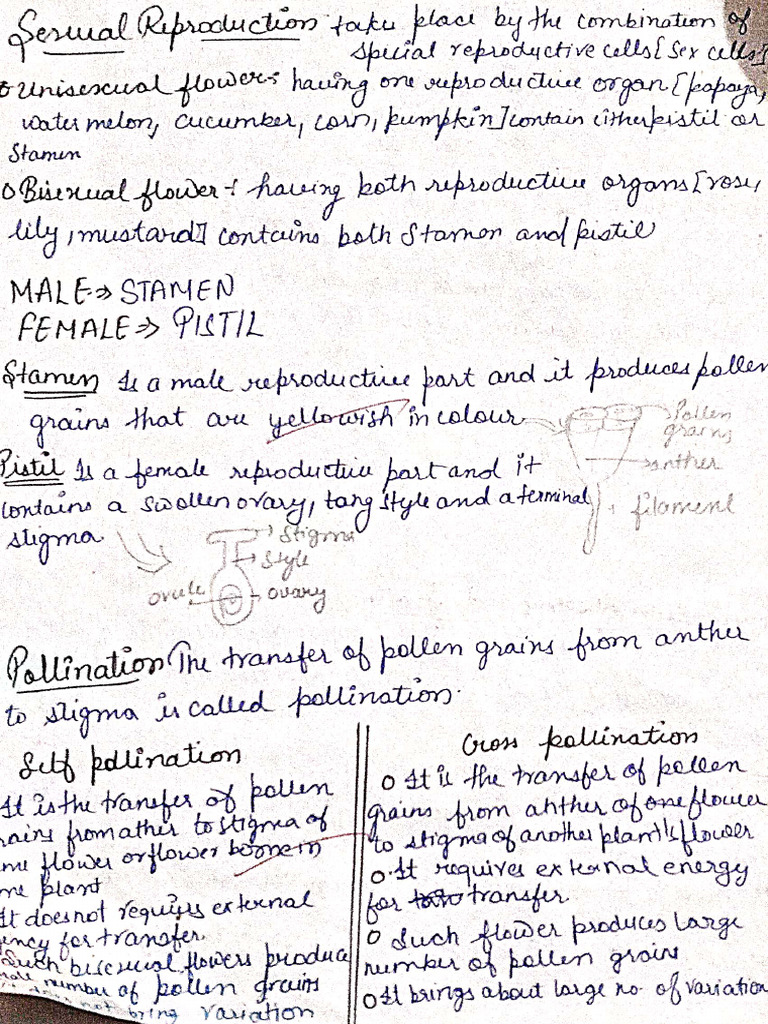 Sexual Reproduction take place by the combination of
special reproductive cells [Sex cells]
o Unisexual flower:- having one reproductive organ [papaya,
water melon, cucumber, corn, pumpkin] contain either pistil or
Stamen
o Bisexual flower :- having both reproductive organs [rose,
lily, mustard] contains both Stamen and pistil
MALE => STAMEN
FEMALE => PISTIL
Stamen Is a male reproductive part and it produces pollen
grains that are yellowish in colour
Pollen
grains
anther
filament
Pistil Is a female reproductive part and it
contains a swollen ovary, tang style and a terminal
stigma
Stigma
Style
ovule
ovary
Pollination The transfer of pollen grains from anther
to stigma is called pollination.
Self pollination
It is the tranfer of pollen
rains from ather to stigma of
me flower or flower borne in
me plant
It does not requires external
ency for transfer.
Such bisexual flowers produce
number of pollen grains
not bring variation
Cross pollination
o It is the transfer of pollen
grains from anther of one flower
to stigma of another plant's flower
o It requires external energy
for transfer.
o Such flower produces large
number of pollen grains
o It brings about large no. of variation